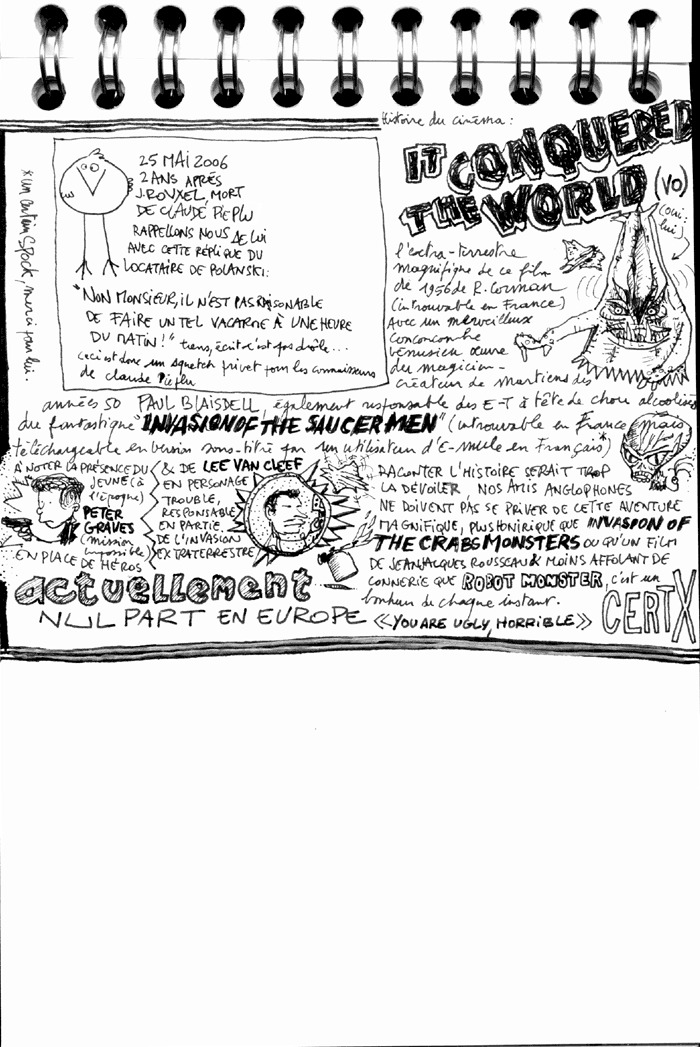 Histoire du cinéma :
IT CONQUERED
THE WORLD (VO)
(oui, lui)
25 MAI 2006
2 ANS APRÉS
J. ROUXEL, MORT
DE CLAUDE PIÉPLU
RAPPELLONS NOUS DE LUI
AVEC CETTE RÉPLIQUE DU
LOCATAIRE DE POLANSKI :
"NON MONSIEUR, IL N'EST PAS RAISONABLE
DE FAIRE UN TEL VACARME À UNE HEURE
DU MATIN!" tiens, écrit c'est pas drôle...
ceci est donc un squetch privet pour les connaisseurs
de claude Piéplu
* un certain SPock, merci pour lui.
l'extra-terrestre
magnifique de ce film
de 1956 de R. Corman
(introuvable en France)
Avec un merveilleux
conconcombre
vénusien œuvre
du magicien-
créateur de martiens des
années 50 PAUL BLAISDELL, également responsable des E-T à tête de chou alcoolisés
du fantastique "INVASION OF THE SAUCER MEN" (introuvable en France mais
téléchargeable en version sous-titré par un utilisateur d'E-mule en Français)*
À NOTER LA PRÉSENCE DU
JEUNE (à
l'époque)
PETER
GRAVES
(mission
impossible)
EN PLACE DE HÉROS
& DE LEE VAN CLEEF
EN PERSONAGE
TROUBLE,
RESPONSABLE
EN PARTIE
DE L'INVASION
EXTRATERRESTRE
RACONTER L'HISTOIRE SERAIT TROP
LA DÉVOILER, NOS AMIS ANGLOPHONES
NE DOIVENT PAS SE PRIVER DE CETTE AVENTURE
MAGNIFIQUE, PLUS HONIRIQUE QUE INVASION OF
THE CRABS MONSTERS OU QU'UN FILM
DE JEAN JACQUES ROUSSEAU & MOINS AFFOLANT DE
CONNERIE QUE ROBOT MONSTER, c'est un
bonheur de chaque instant.
actuellement
NUL PART EN EUROPE
«YOU ARE UGLY, HORRIBLE»
CERT X